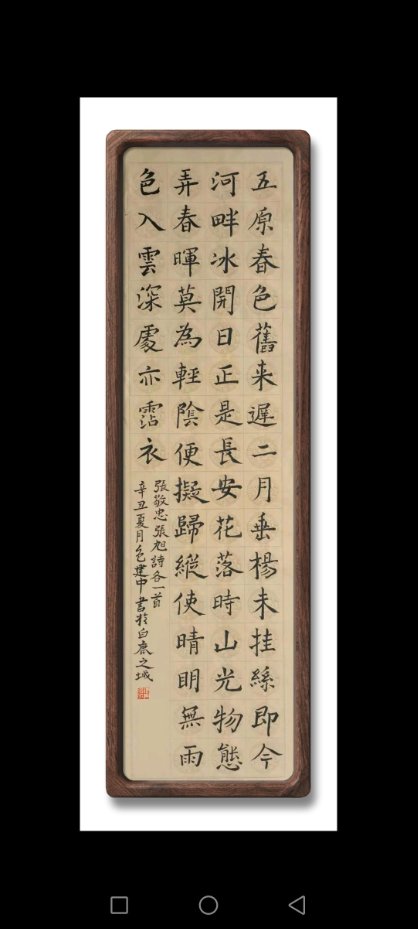 五原春色舊来遲二月垂楊未挂絲即今
河畔冰開日正是長安花落時山光物態
弄春暉莫為輕陰便擬歸縱使晴眀無雨
色入雲深處亦霑衣
張敬忠張旭詩各一首
辛丑夏月包建中書於白鹿之城